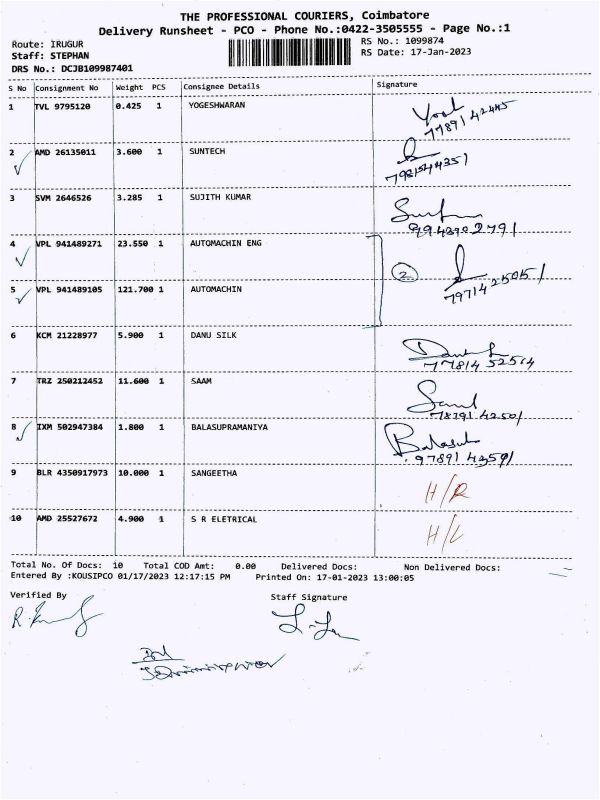 THE PROFESSIONAL COURIERS, Coimbatore
Delivery Runsheet - PCO - Phone No.:0422-3505555 - Page No.:1
Route: IRUGUR
RS No.: 1099874
Staff: STEPHAN
RS Date: 17-Jan-2023
DRS No.: DCJB109987401
S No Consignment No Weight PCS Consignee Details Signature
1 TVL 9795120 0.425 1 YOGESHWARAN
2 AMD 26135011 3.600 1 SUNTECH
3 SVM 2646526 3.285 1 SUJITH KUMAR
4 VPL 941489271 23.550 1 AUTOMACHIN ENG
2
5 VPL 941489105 121.700 1 AUTOMACHIN
6 KCM 21228977 5.900 1 DANU SILK
7 TRZ 250212452 11.600 1 SAAM
8 IXM 502947384 1.800 1 BALASUPRAMANIYA
9 BLR 4350917973 10.000 1 SANGEETHA H/R
10 AMD 25527672 4.900 1 S R ELETRICAL H/L
Total No. Of Docs: 10 Total COD Amt: 0.00 Delivered Docs: Non Delivered Docs:
Entered By :KOUSIPCO 01/17/2023 12:17:15 PM Printed On: 17-01-2023 13:00:05
Verified By Staff Signature